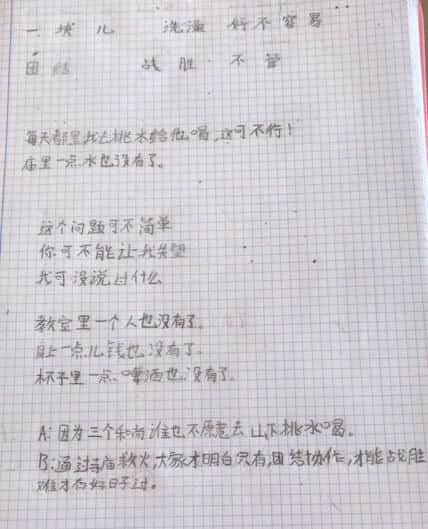 一块儿 洗澡 好不容易
团结 战胜 不管
每天都是我去挑水给他喝,这可不行!
庙里一点水也没有了。
这个问题可不简单
你可不能让我失望
我可没说过什么
教室里一个人也没有了。
身上一点儿钱也没有了。
杯子里一点啤酒也没有了。
A:因为三个和尚谁也不愿意去山下挑水喝。
B:通过寺庙救火,大家才明白只有团结协作,才能战胜
难才有好日子过。